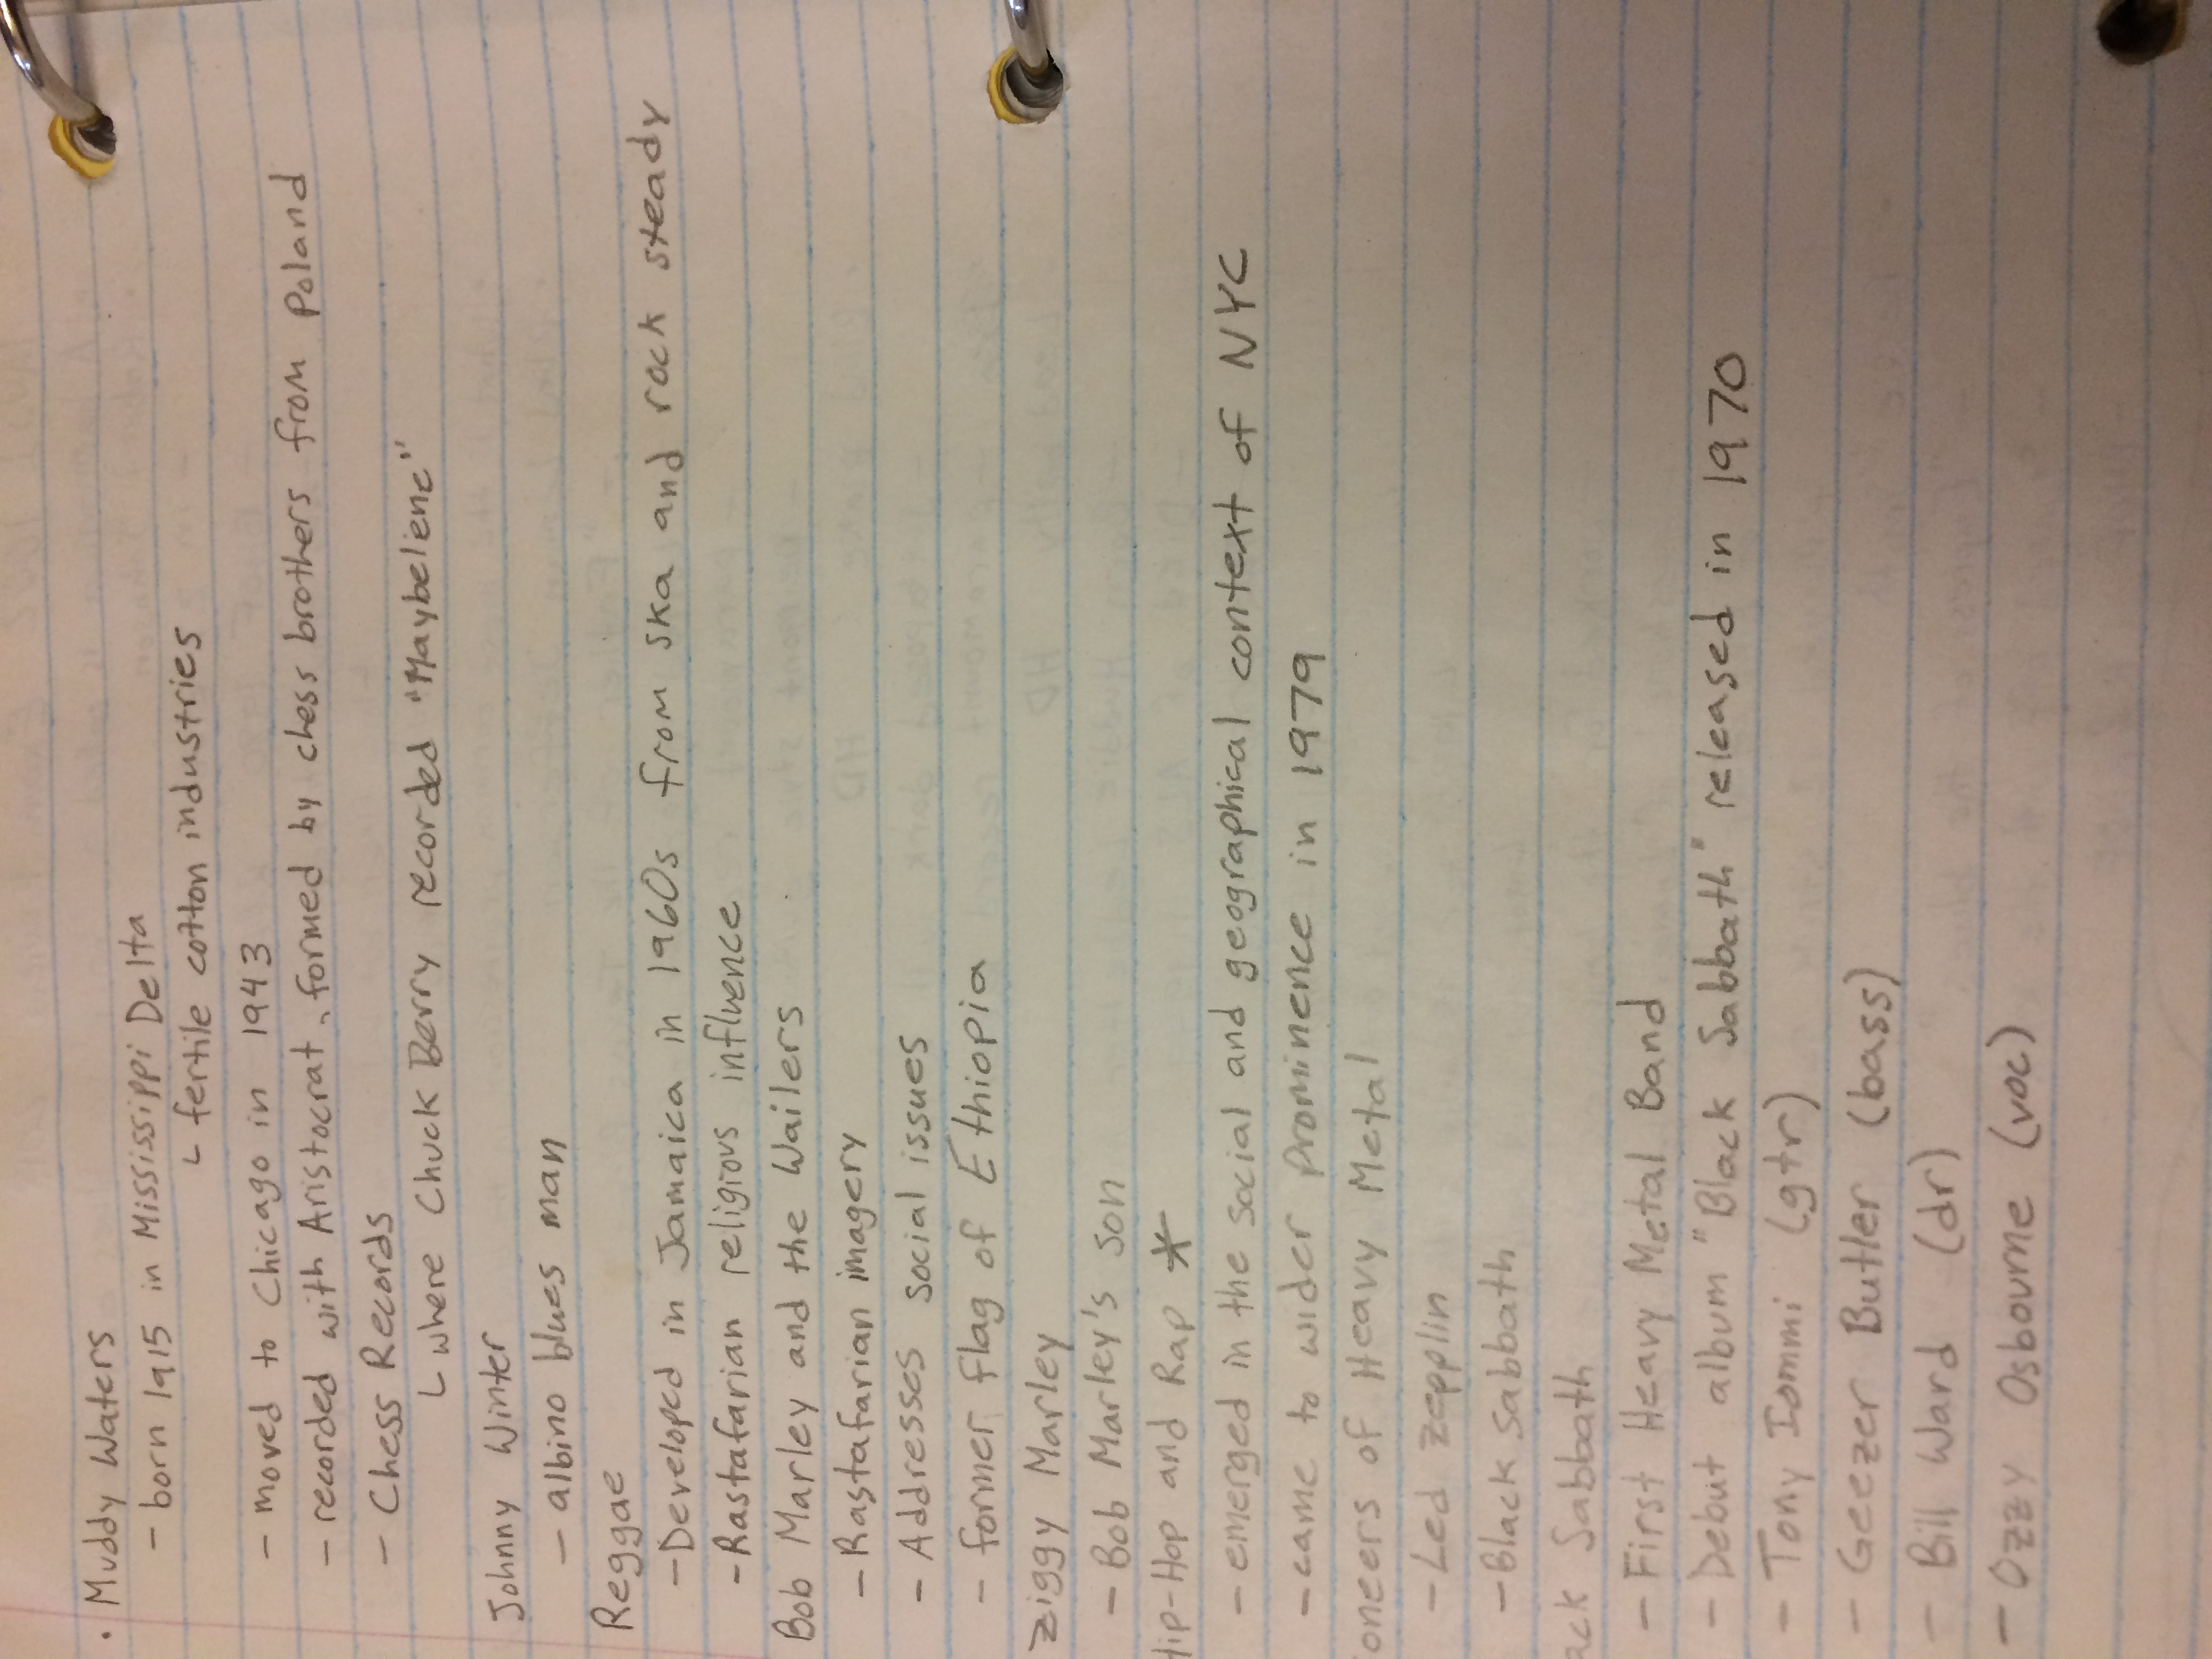 · Muddy Waters
- born 1915 in Mississippi Delta
└ fertile cotton industries
- moved to Chicago in 1943
- recorded with Aristocrat, formed by chess brothers from Poland
- Chess Records
└ where Chuck Berry recorded "Maybeliene"
Johnny Winter
- albino blues man
Reggae
- Developed in Jamaica in 1960s from ska and rock steady
- Rastafarian religious influence
Bob Marley and the Wailers
- Rastafarian imagery
- Addresses social issues
- former flag of Ethiopia
Ziggy Marley
- Bob Marley's son
Hip-Hop and Rap *
- emerged in the social and geographical context of NYC
- came to wider prominence in 1979
oneers of Heavy Metal
- Led zepplin
- Black sabbath
ack Sabbath
- First Heavy Metal Band
- Debut album "Black Sabbath" released in 1970
- Tony Iommi (gtr)
- Geezer Butler (bass)
- Bill Ward (dr)
- Ozzy Osbourne (voc)